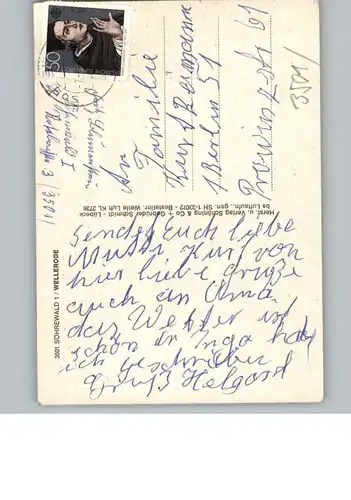 50
DEUTSCHE BUNDESPOST
An
Familie
Kurt
1 Berlin 51
Provinzstr. 61
3501
Söhrewald 1
3501
3501 SÖHREWALD 1 / WELLERODE
Herst. u. Verlag Schöning & Co + Gebrüder Schmidt - Lübeck
bs Luftaufn., gen. SH 1-330/72 - Bestellnr. Welle Luft KL 2736
Sende Euch liebe
Mutti Kurt von
hier liebe Grüße
auch an Oma.
das Wetter ist
schön an Inga hab
ich geschrieben
Gruß Helgard